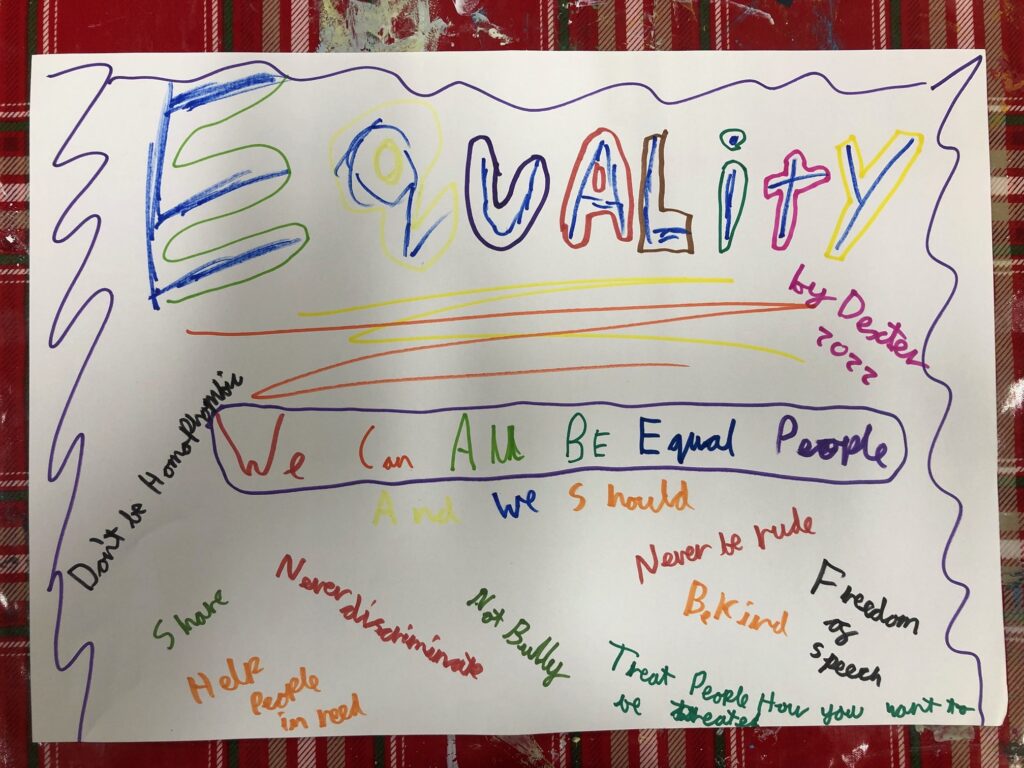 EQUALity
by Dexter
2022
Don't be Homophrombic
We Can All BE Equal People
And we Should
Never be rude
Share
Never
discriminate
Not Bully
Be Kind
Freedom
of
speech
Help
People
in need
Treat People How you want to
be treated